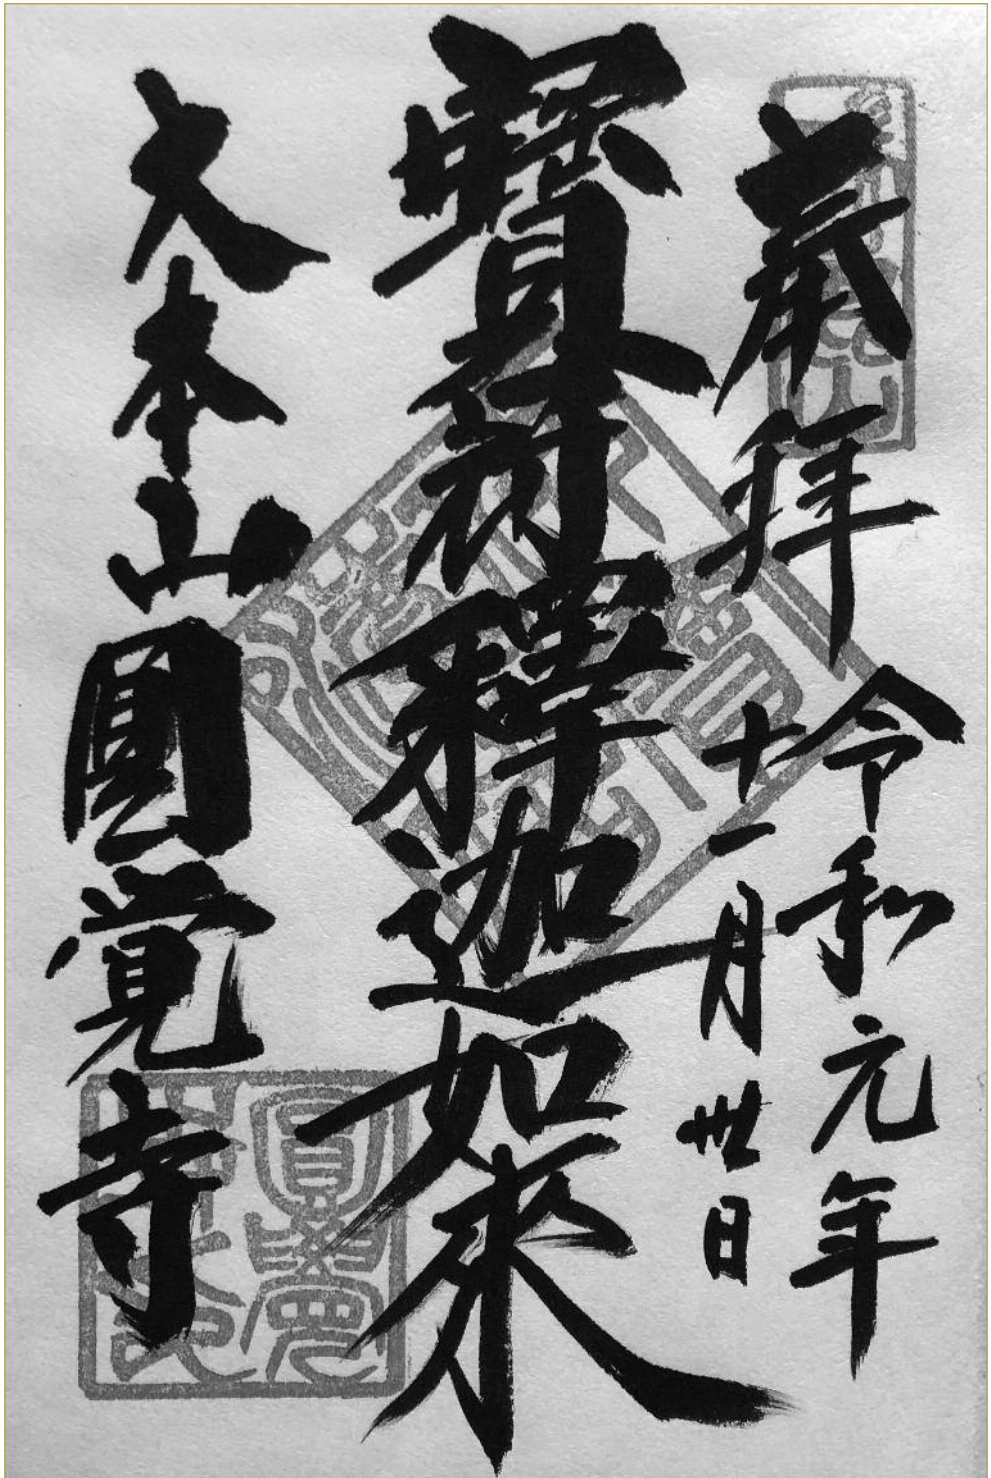 奉拝
令和元年
十一月卅日
寶冠釋迦如来
大本山圓覚寺